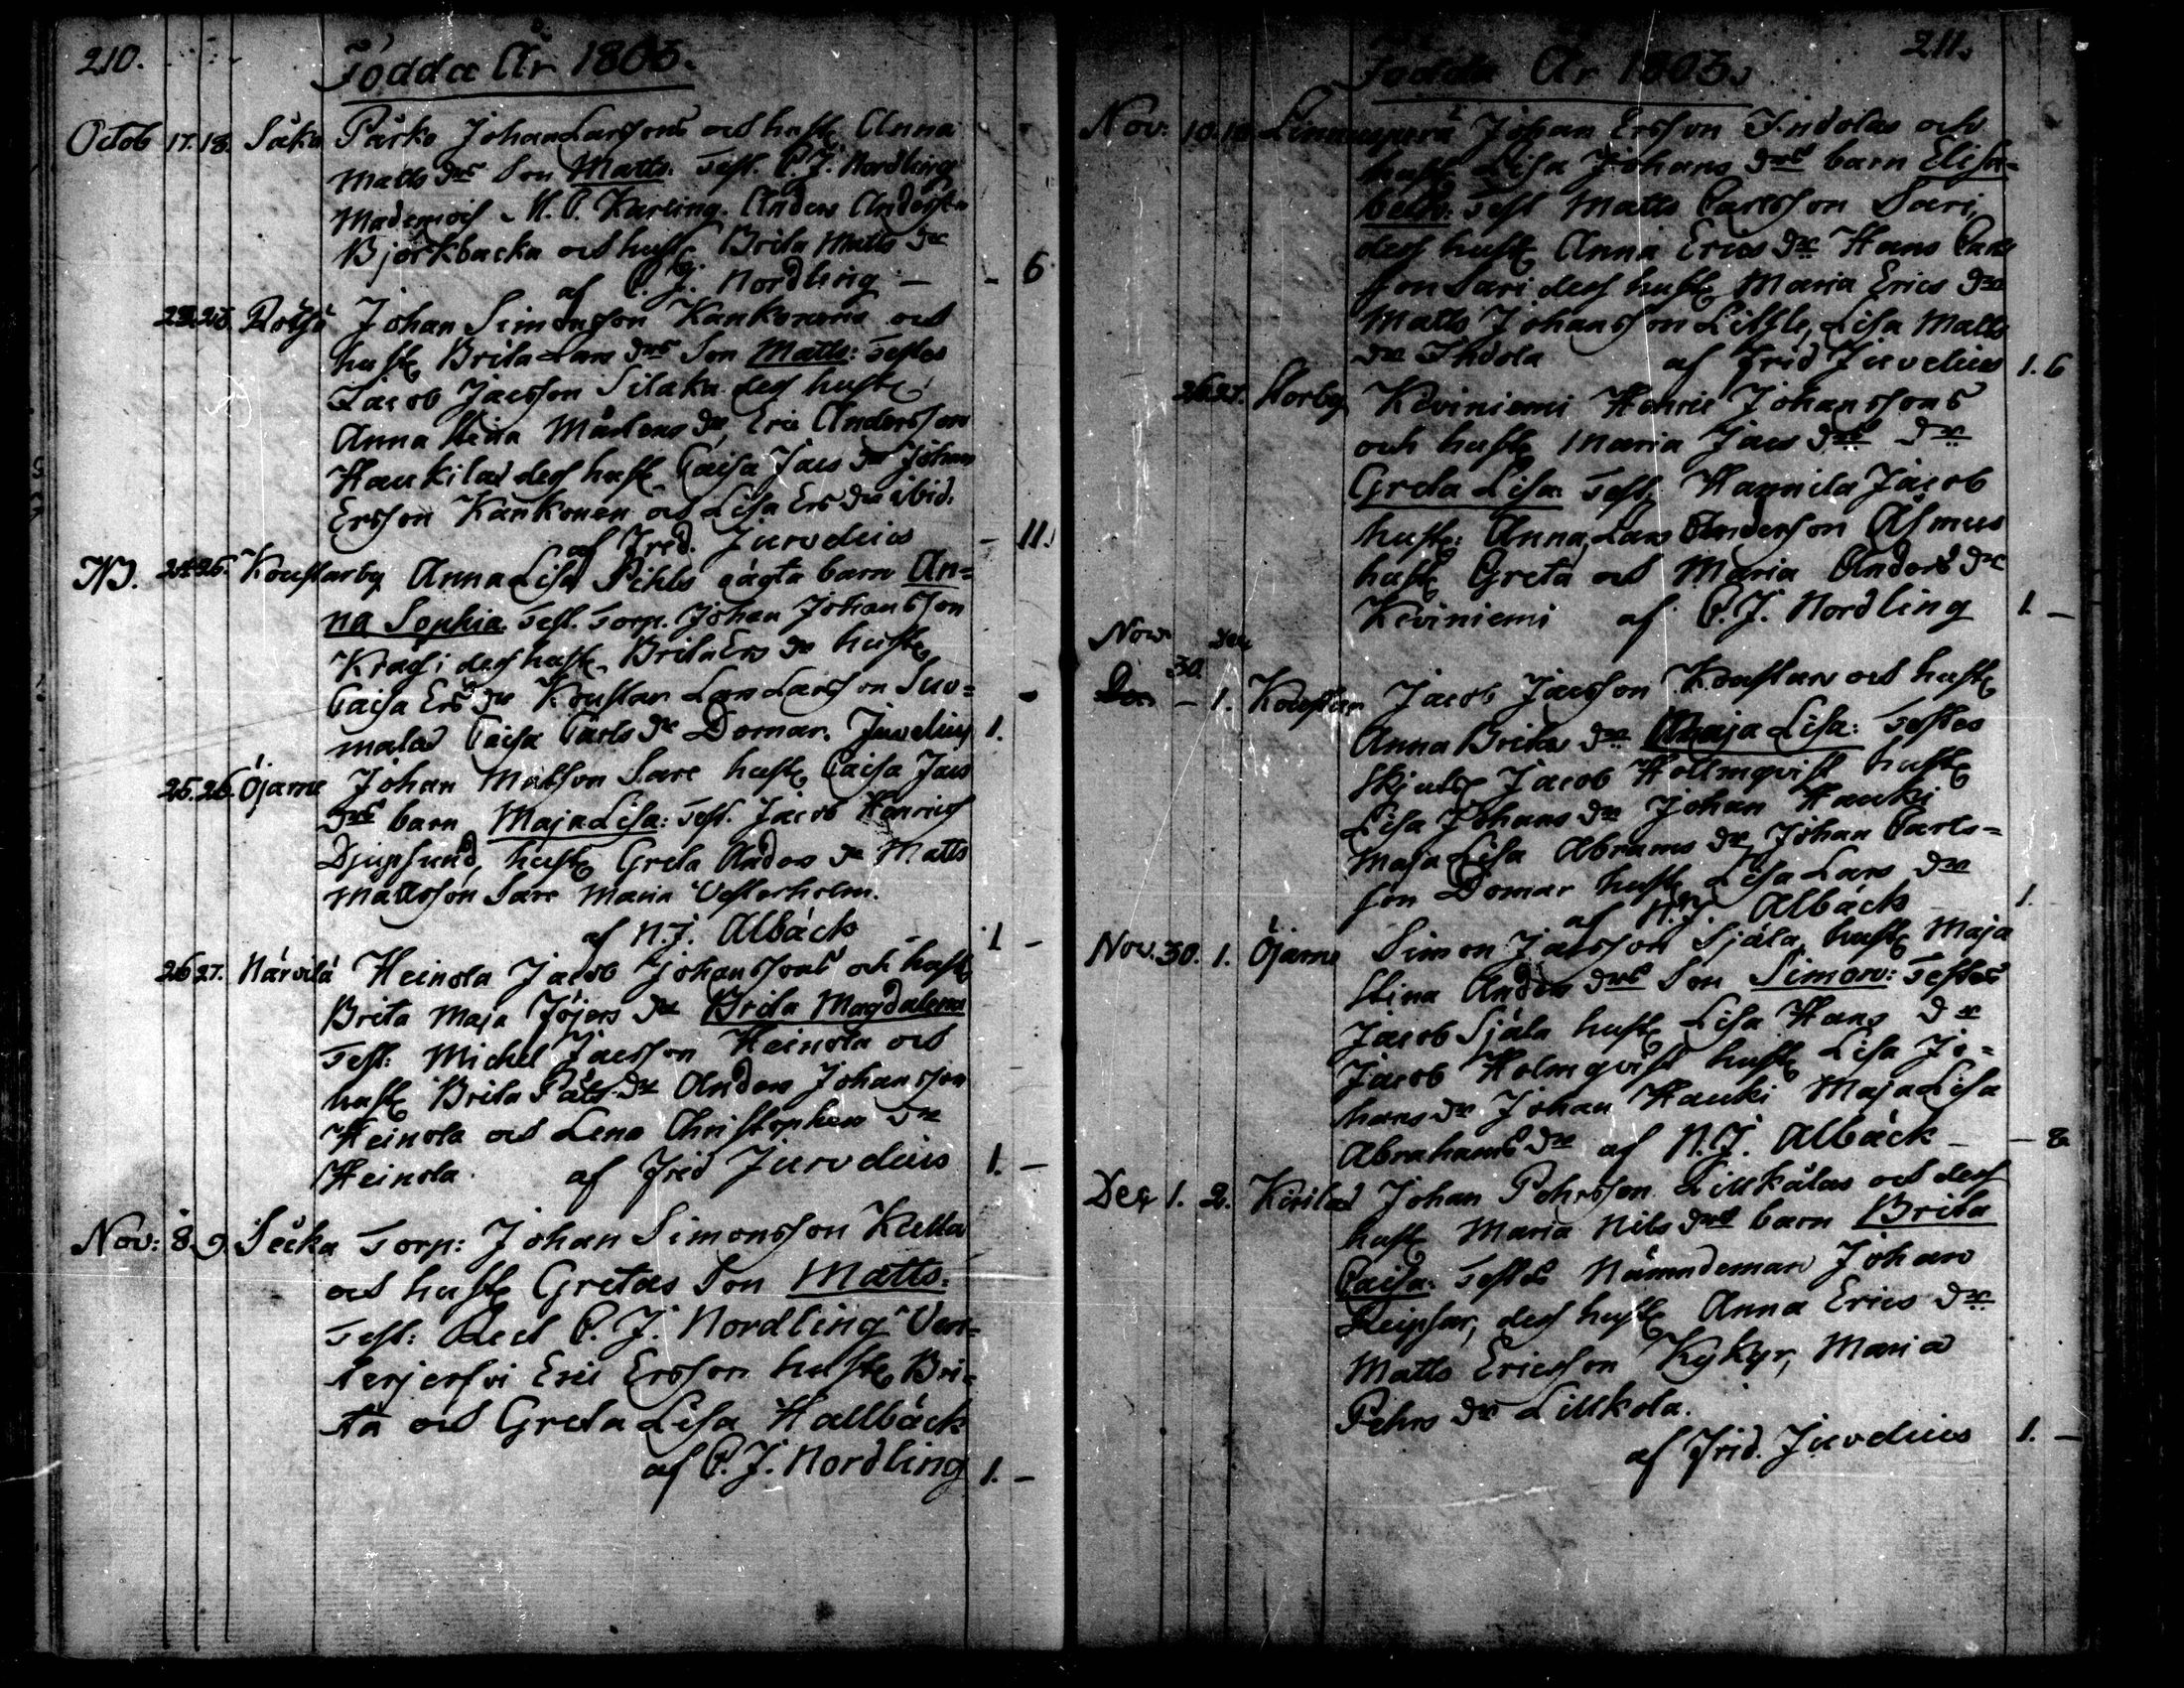 210.
Födde År 1803.
Octob 17. 18. Såka Pårko Johan Larssons och hust. Anna
Matts drs Son Matts: Test. C. J. Nordling
Mademois M. C. Karling. Anders Anderss
Björkbacka och hust. Brita Matts dr
af C. J. Nordling - - 6
Johan Simonsson Kankonens och
hust. Brita Lars drs Son Matts: Testes
Jacob Jacsson Silaka dess hust.
Anna Stina Mårtens dr, Eric Andersson
Haukilas dess hust. Caisa Jacs dr Johan
Ersson Kankonen och Lisa Ers dr ibid.
af Fred. Juvelius - 11.
24. 25. Kouslarby Anna Lisa Pihls oägta barn An=
na Sophia. Test. Torp. Johan Johansson
Kragi dess hust. Brita Ers dr hust.
Caisa Ers dr Kouslar Lars Larsson Suo=
malas Caisa Carls dr Domar. Juvelius 1.
25. 26. Öjarne Johan Matsson Sare hust. Caisa Jacs
drs barn Maja Lisa: Test. Jacob Henrics
Djupsund, hust. Greta Anders dr Matts
Mattsson Sare Maria Vesterholm.
af N. J. Albäck 1 -
26 27. Närvilä Heinola Jacob Johanssons och hust.
Brita Maja Jöjers dr Brita Magdalena
Test: Michel Jacsson Heinola och
hust. Brita Påls dr Anders Johansson
Heinola och Lena Christophers dr
Heinola. af Frid Juvelius 1. -
Nov: 8. 9. Såcka Torp: Johan Simonsson Kalla
och hust. Gretas Son Matts:
Test: C. J. Nordling Ven=
terjerfvi Eric Ersson hust. Bri=
ta och Greta Lisa Hallbäck
af C. J. Nordling 1. -
211.
Födde År 1803.
Nov: 10. Johan Ersson Indolas och
hust. Lisa Johans drs barn Elisa=
beth: Test Matts Carlsson Sari,
dess hust. Anna Erics dr Hans Carls
son Sari dess hust. Maria Erics dr
Matts Johansson Lissle, Lisa Matts
dr Indola af Frid Juvelius 1. 6
26. 27. Storby Keviniemi Henric Johanssons
och hust. Maria Jacs drs dr
Greta Lisa: Test. Hannila Jacob
hust: Anna, Lars Andersson Åsmus
hust. Greta och Maria Anders dr
Keviniemi af C. J. Nordling 1. -
Nov 30. - 1. Kouslar Jacob Jacsson Kouslar och hust.
Anna Brita dr Maja Lisa: Testes
Jacob Hollmqvist hust.
Lisa Johans dr Johan Hauki
Maja Lisa Abrams dr, Johan Carls=
son Domar hust. Lisa Lars dr
af N. J. Albäck 1.
Nov. 30. 1. Öjarne Simon Jacsson Själa, hust. Maja
Stina Anders drs Son Simon: Testes
Jacob Själa hust. Lisa Hans dr
Jacob Holmqvist hust. Lisa Jo=
hans dr Johan Hauki Maja Lisa
Abrahams dr af N. J. Albäck - - 8.
Dec 1. 2. Kirilas Johan Pehrsson Lillkålas och dess
hust. Maria Nils drs barn Brita
Caisa: Testes Nämndeman Johan
Leipsar, dess hust. Anna Erics dr
Matts Ericsson Kykyr, Maria
Pehrs dr Lillkola.
af Frid. Juvelius 1. -